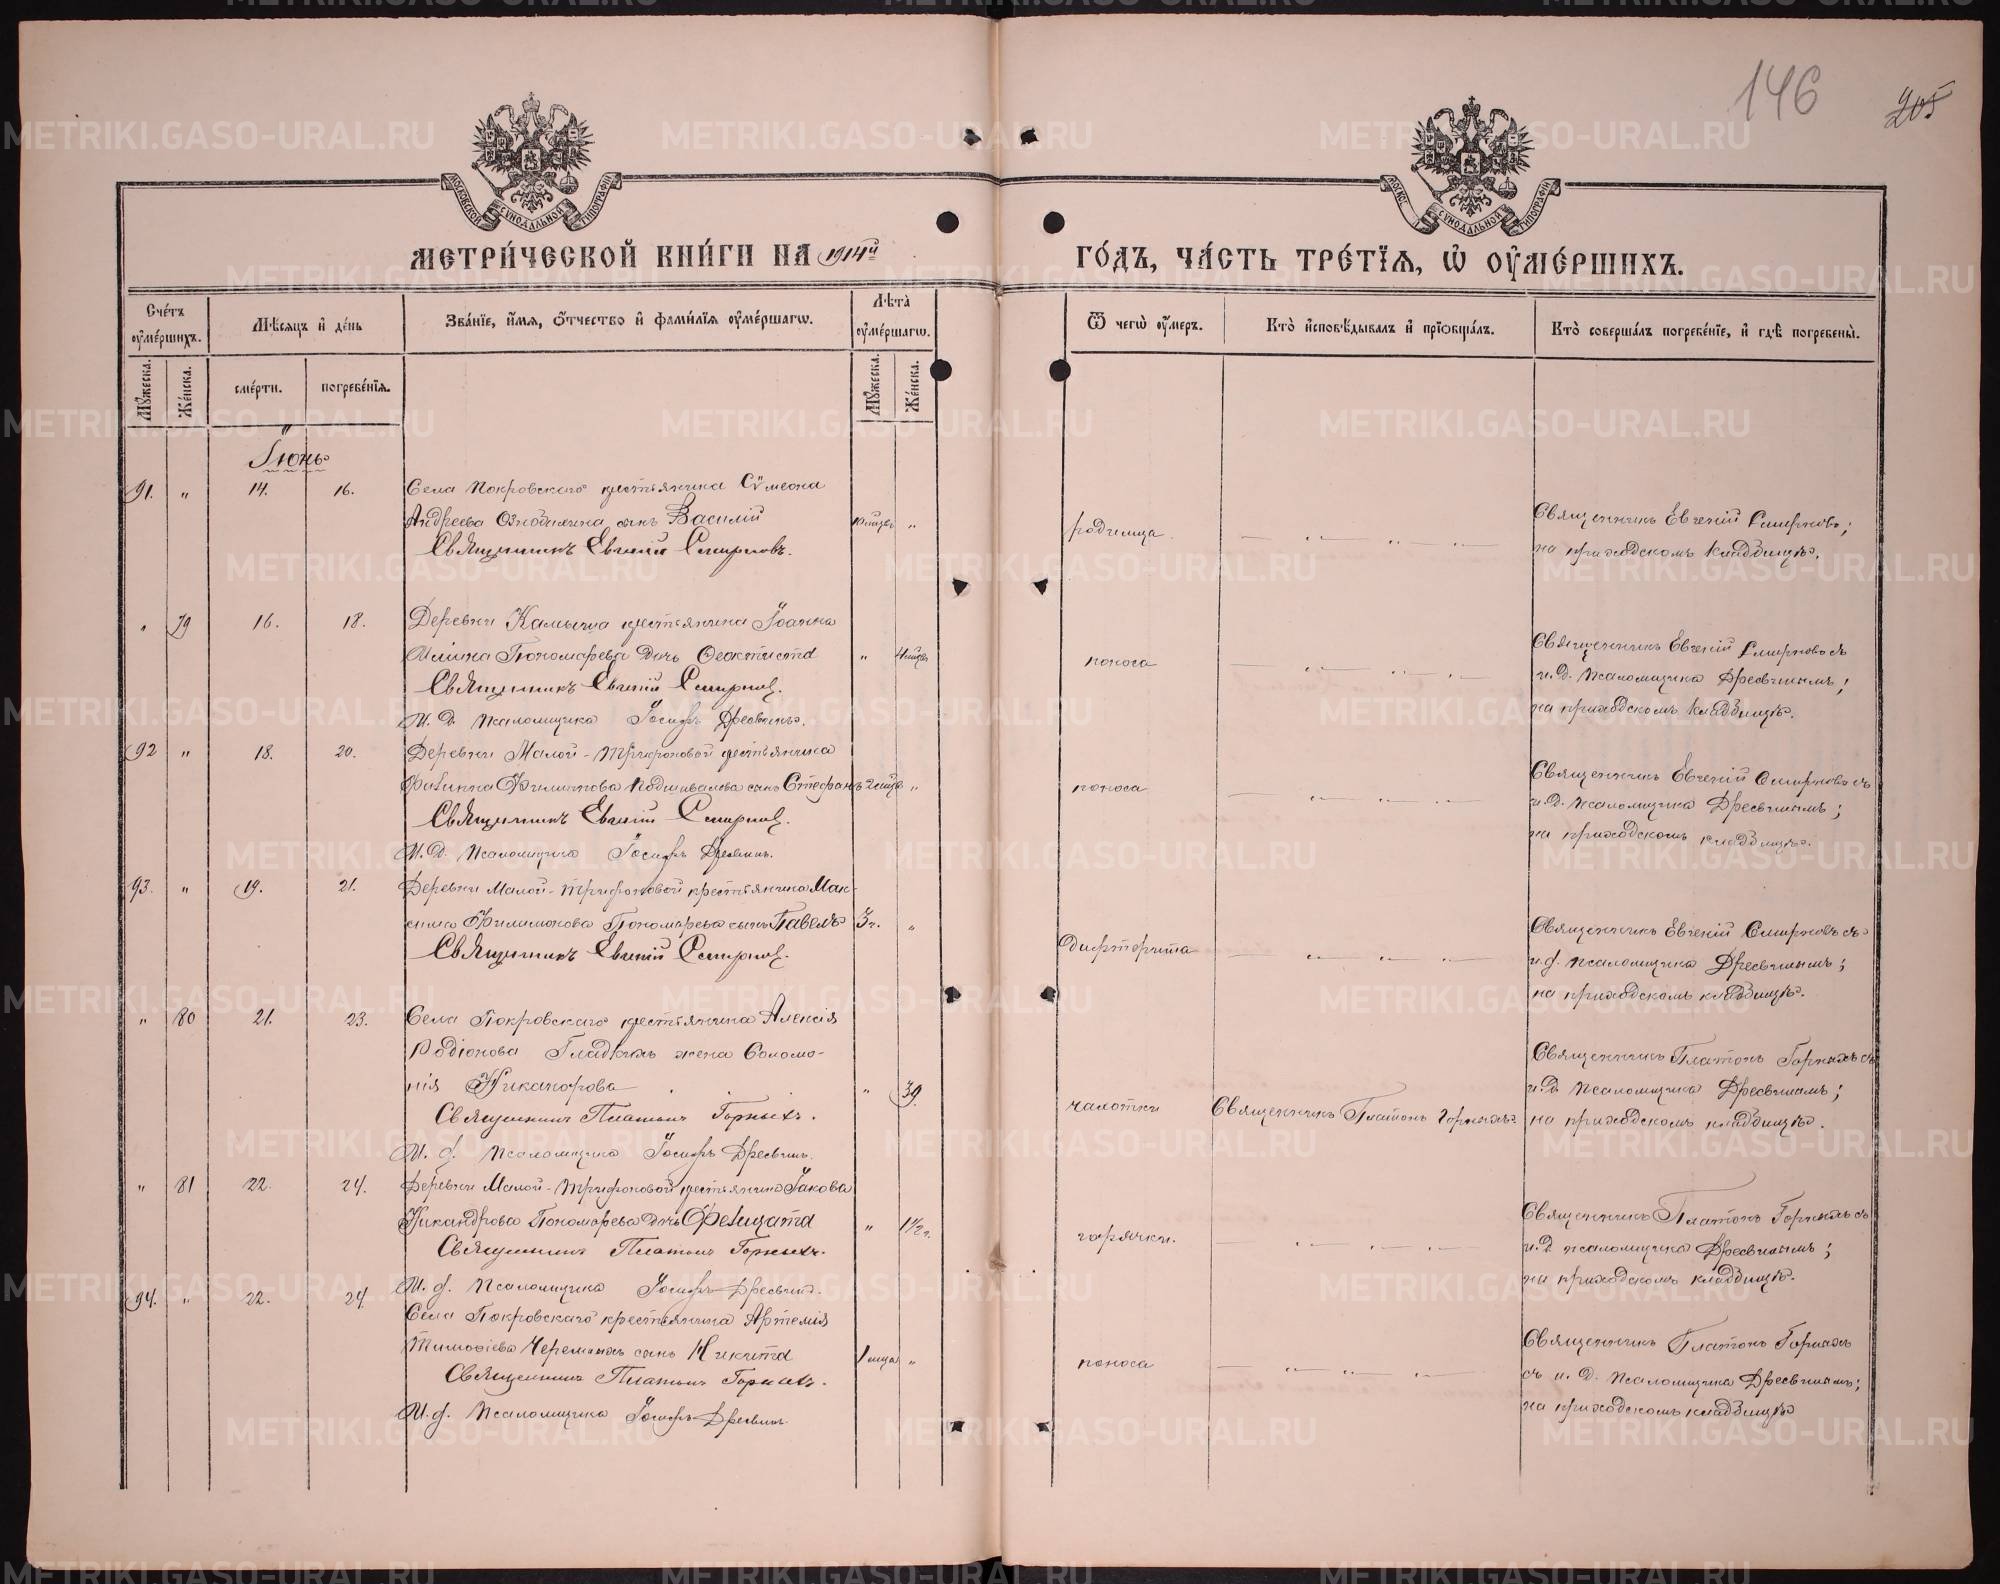 146
205
МОСКОВСКОЙ СУНОДАЛЬНОЙ ТИПОГРАФІИ
МЕТРИ́ЧЕСКОЙ КНИ́ГИ НА 1914й ГО́ДЪ, ЧА́СТЬ ТРЕ́ТЇЯ, Ѡ҆ ОУ҆МЕ́РШИХЪ.
Сче́тъ оу҆ме́ршихъ.
Мѣ́сяцъ и҆ де́нь
Зва́нїе, и҆́мя, ѻ҆́тчество и҆ фами́лїя оу҆ме́ршагѡ.
Лѣ́та оу҆ме́ршагѡ.
Ѿ чегѡ̀ оу҆́меръ.
Кто̀ и҆сповѣ́дывалъ и҆ прїѡбща́лъ.
Кто̀ соверша́лъ погребе́нїе, и҆ гдѣ̀ погребены̀.
Му́жеска. Же́нска. сме́рти. погребе́нїя. Му́жеска. Же́нска.
Іюнь
91. " 14. 16. Села Покровскаго крестьянина Сѵмеона
Андреева Ознобихина сынъ Василій "
Священникъ Евгеній Смирновъ.
родимца
Священникъ Евгеній Смирновъ;
на приходскомъ кладбищѣ.
" 79 16. 18. Деревни Камыша крестьянина Іоанна
Иліина Пономарева дочь Ѳеоктиста " 4 мцъ
Священникъ Евгеній Смирновъ.
И. д. псаломщика Іосифъ Дресвинъ.
поноса
Священникъ Евгеній Смирновъ съ
и. д. псаломщика Дресвинымъ;
на приходскомъ кладбищѣ.
92 " 18. 20. Деревни Малой-Трифоновой крестьянина
Филиппова Подшивалова сынъ Стефанъ 2 мцъ "
Священникъ Евгеній Смирновъ.
И. д. псаломщика Іосифъ Дресвинъ.
поноса
Священникъ Евгеній Смирновъ съ
и. д. псаломщика Дресвинымъ;
на приходскомъ кладбищѣ.
93. " 19. 21. Деревни Малой-Трифоновой крестьянина Мак-
сима Филимонова Пономарева сынъ Павелъ 3 г. "
Священникъ Евгеній Смирновъ.
дифтерита
Священникъ Евгеній Смирновъ съ
и. д. псаломщика Дресвинымъ;
на приходскомъ кладбищѣ.
" 80 21. 23. Села Покровскаго крестьянина Алексія
Родіонова Гладкихъ жена Соломо-
нія Никанорова " 39.
Священникъ Платонъ Горныхъ.
И. д. псаломщика Іосифъ Дресвинъ.
чахотки
Священникъ Платонъ Горныхъ.
Священникъ Платонъ Горныхъ съ
и. д. псаломщика Дресвинымъ;
на приходскомъ кладбищѣ.
" 81 22. 24. Деревни Малой-Трифоновой крестьянина Іакова
Никандрова Пономарева дочь Фелицата " 1 1/2 г.
Священникъ Платонъ Горныхъ.
И. д. псаломщика Іосифъ Дресвинъ.
горячки.
Священникъ Платонъ Горныхъ съ
и. д. псаломщика Дресвинымъ;
на приходскомъ кладбищѣ.
94. " 22. 24. Села Покровскаго крестьянина Артемія
Тимоѳеева Черемныхъ сынъ Никита 1 мца "
Священникъ Платонъ Горныхъ.
И. д. псаломщика Іосифъ Дресвинъ.
поноса
Священникъ Платонъ Горныхъ
съ и. д. псаломщика Дресвинымъ;
на приходскомъ кладбищѣ
METRIKI.GASO-URAL.RU